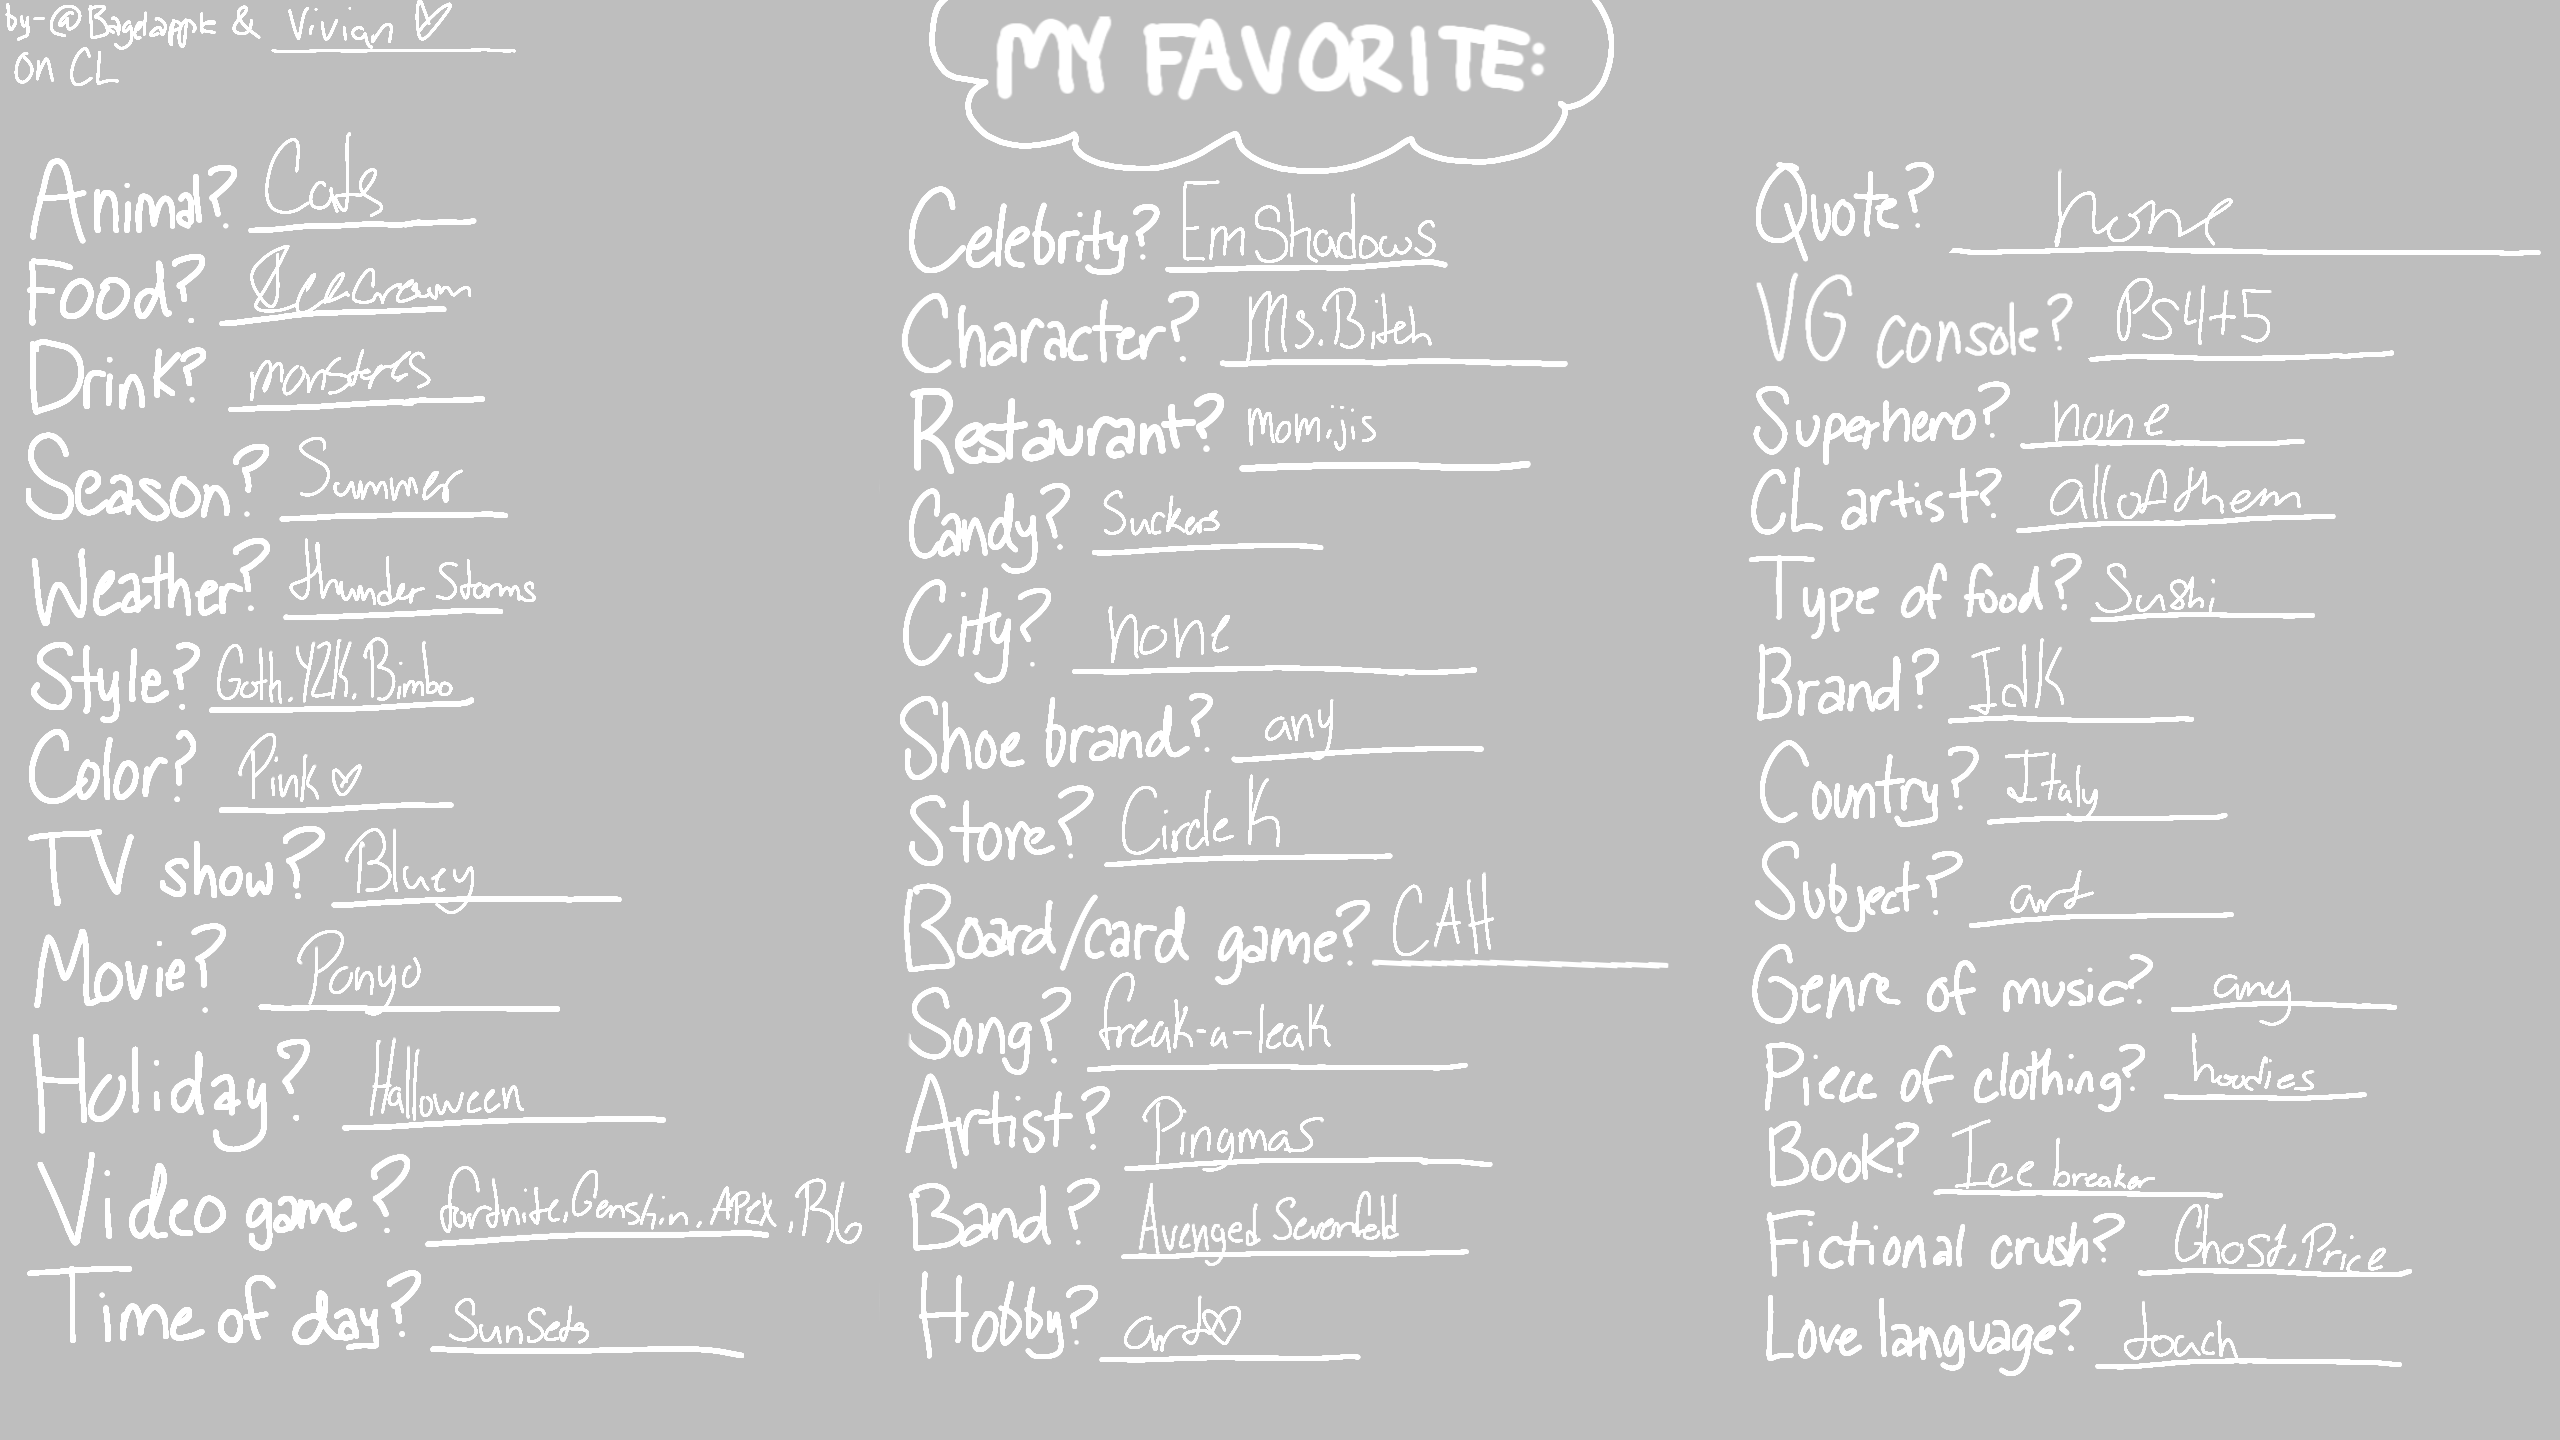 by-@Bagelapple & Vivian ♡
on CL
MY FAVORITE:
Animal? Cats
Food? Icecream
Drink? monsteres
Season? Summer
Weather? thunder Storms
Style? Goth. Y2K. Bimbo
Color? Pink ♡
TV show? Bluey
Movie? Ponyo
Holiday? Halloween
Video game? fortnite, Genshin, APEX, R6
Time of day? Sunsets
Celebrity? Em Shadows
Character? Ms. Bitch
Restaurant? Momijis
Candy? Suckers
City? none
Shoe brand? any
Store? Circle K
Board/card game? CAH
Song? freak-a-leak
Artist? Pingmas
Band? Avenged Sevenfeld
Hobby? art♡
Quote? none
VG console? PS4+5
Superhero? none
CL artist? all of them
Type of food? Sushi
Brand? Idk
Country? Italy
Subject? art
Genre of music? any
Piece of clothing? hoodies
Book? Ice breaker
Fictional crush? Ghost, Price
Love language? touch